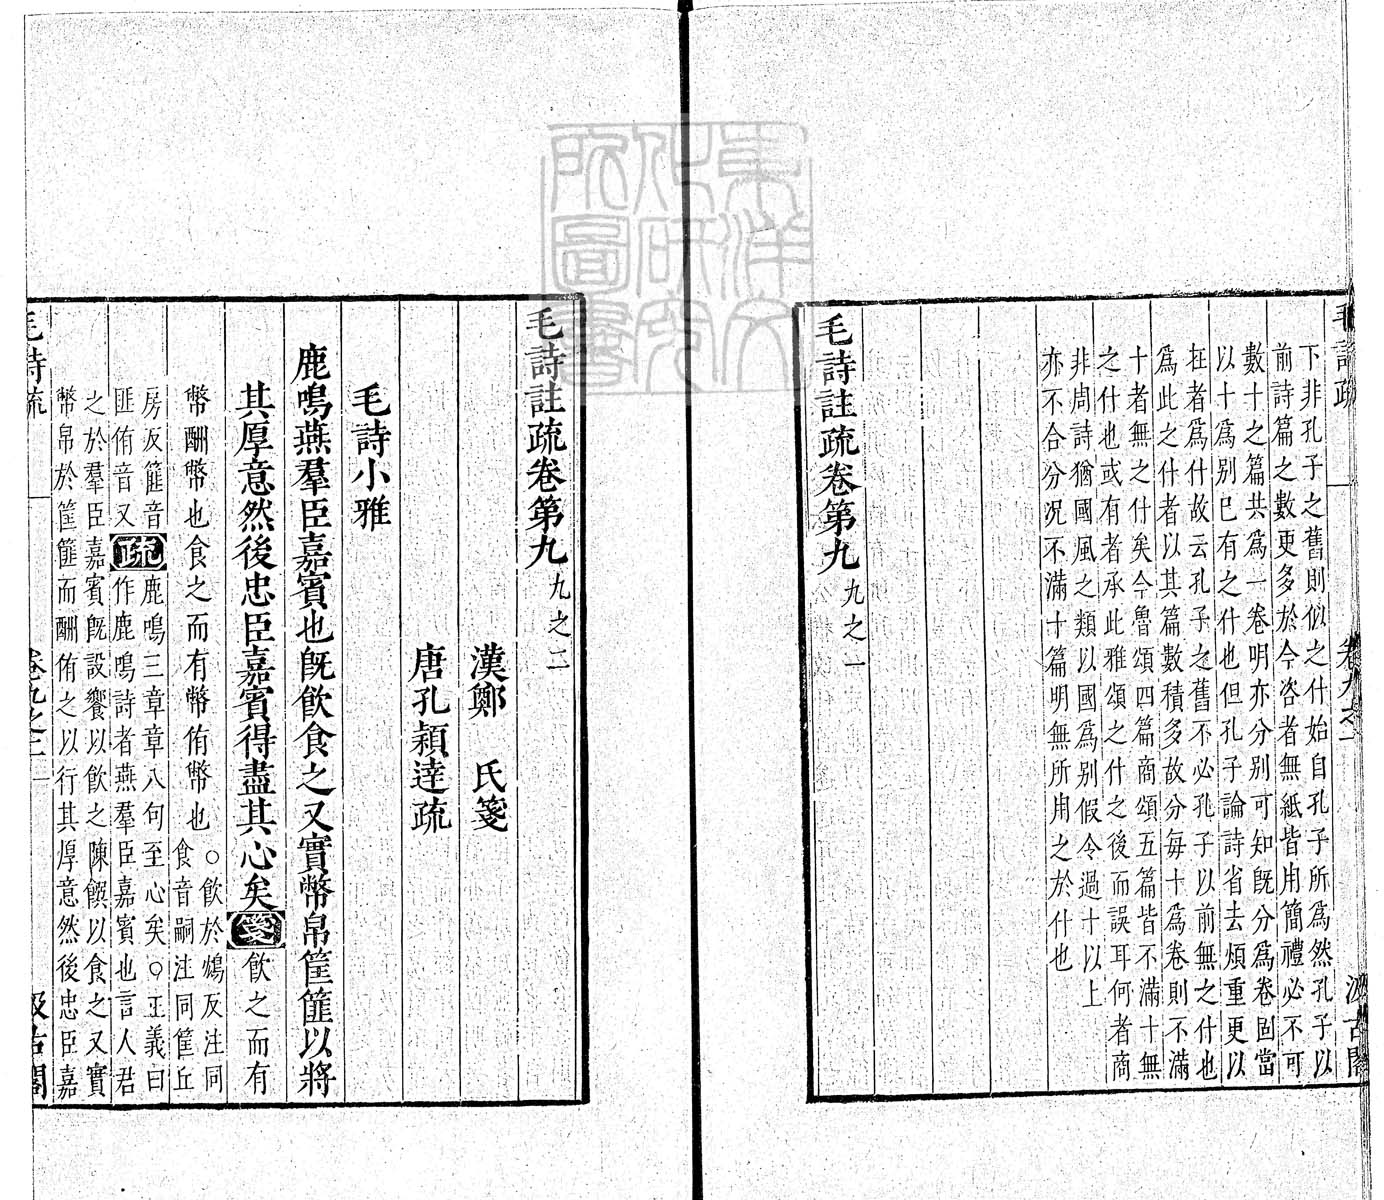 毛詩疏 卷九之一 汲古閣
下非孔子之舊則似之什始自孔子所爲然孔子以
前詩篇之數更多於今咨者無紙皆用簡禮必不可
數十之篇共爲一卷明亦分别可知旣分爲卷固當
以十爲别巳有之什也但孔子論詩省去煩重更以
在者爲什故云孔子之舊不必孔子以前無之什也
爲此之什者以其篇數積多故分每十爲卷則不滿
十者無之什矣今魯頌四篇商頌五篇皆不滿十無
之什也或有者承此雅頌之什之後而誤耳何者商
非周詩猶國風之類以國爲别假令過十以上
亦不合分况不滿十篇明無所用之於什也
毛詩註疏卷第九 九之一
東洋文
化研究
所圖書
毛詩註疏卷第九 九之二
漢鄭 氏箋
唐孔穎達疏
毛詩小雅
鹿鳴燕羣臣嘉賓也旣飲食之又實幣帛筐篚以將
其厚意然後忠臣嘉賓得盡其心矣箋飲之而有
幣酬幣也食之而有幣侑幣也
○飲於鴆反注同
食音嗣注同筐丘
房反篚音
匪侑音又
疏
鹿鳴三章章八句至心矣○正義曰
作鹿鳴詩者燕羣臣嘉賓也言人君
之於羣臣嘉賓旣設饗以飲之陳饌以食之又實
幣帛於筐篚而酬侑之以行其厚意然後忠臣嘉
毛詩疏 卷九之二 一 汲古閣